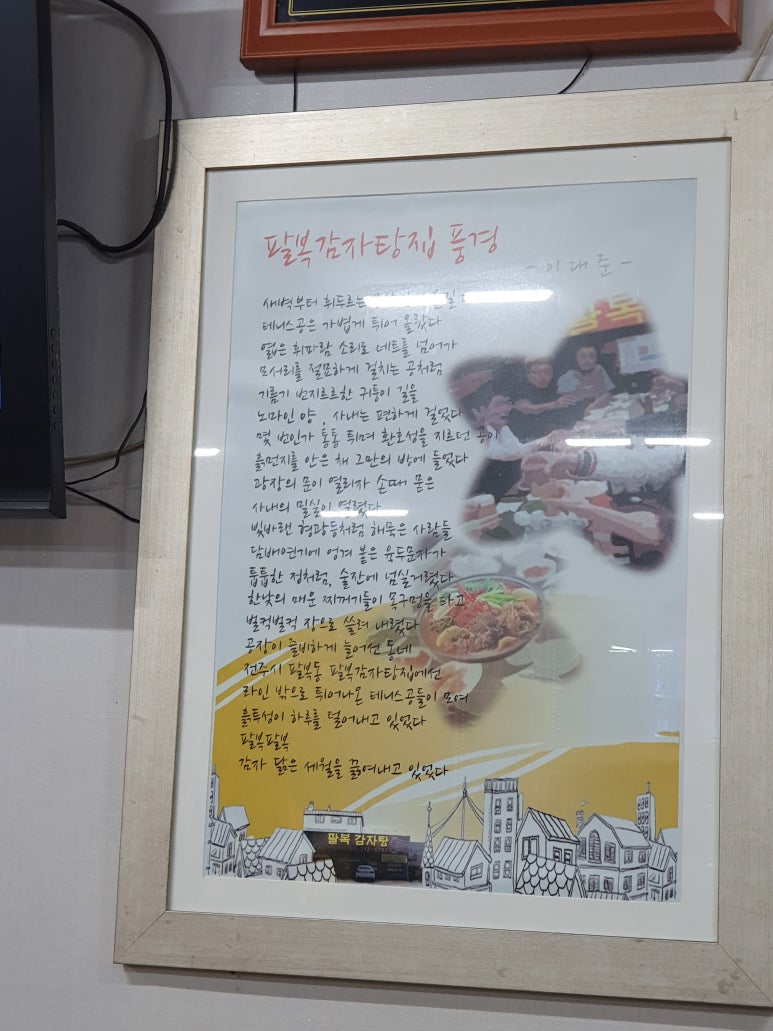 팔복감자탕집 풍경
- 이 대 준 -
새벽부터 휘두르는
테니스공은 가볍게 튀어 올랐다
엷은 휘파람 소리로 네트를 넘어가
모서리를 절묘하게 걸치는 공처럼
기름기 번지르르한 귀퉁이 길을
노파인 양, 사내는 편하게 걸었다
몇 번인가 통통 튀며 환호성을 지르던 공이
흙먼지를 안은 채 그만의 밤에 들었다
광장의 문이 열리자 손때 묻은
사내의 밀실이 열렸다
빛바랜 형광등처럼 해묵은 사람들
담배연기에 엉겨 붙은 육두문자가
툽툽한 정처럼, 술잔에 넘실거렸다
한낮의 매운 찌꺼기들이 목구멍을 타고
벌컥벌컥 장으로 쓸려 내렸다
공장이 즐비하게 늘어선 동네
전주시 팔복동 팔복감자탕집에선
라인 밖으로 튀어나온 테니스공들이 모여
흙투성이 하루를 털어내고 있었다
팔복팔복
감자 닮은 세월을 끓여내고 있었다
팔복 감자탕